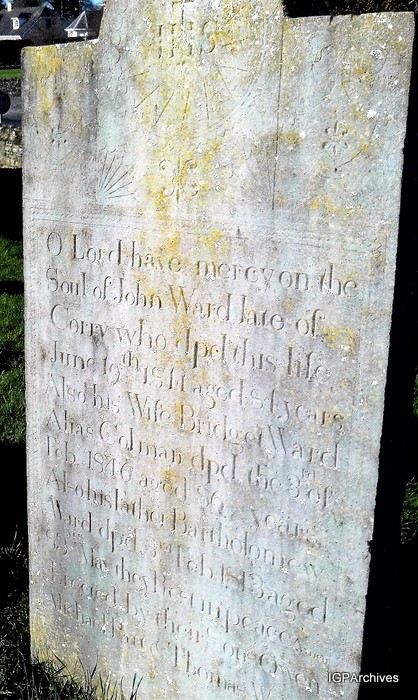 IHS
O Lord have mercy on the
Soul of John Ward late of
Corry who dpd this life
June 19th 1811 aged 84 years
Also his Wife Bridget Ward
Alias Colman dpd the 3rd of
Feb. 1846 aged 86 years
Also his father Bartholomew
Ward dpd Feb. 1813 aged
May they Rest in peace
Erected by their Sons Owen
Michael Pat & Thomas
IGPArchives